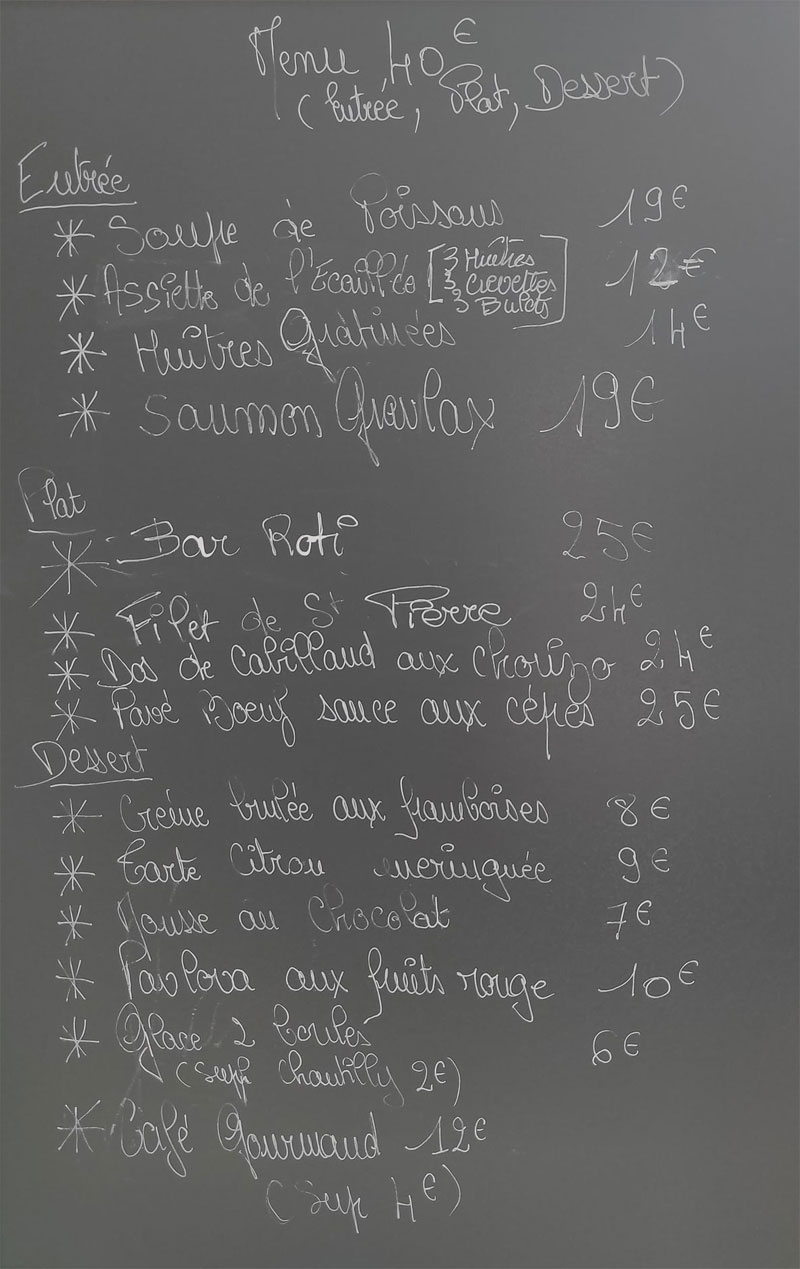 Menu 40€
(Entrée, Plat, Dessert)
Entrée
* Soupe de Poissons 19€
* Assiette de l'Ecaillé [3 Huîtres 12€
3 Crevettes
3 Bulots]
* Huîtres Gratinées 14€
* Saumon Gravlax 19€
Plat
* Bar Roti 25€
* Filet de St Pierre 24€
* Dos de Cabillaud aux chorizo 24€
* Pavé Boeuf sauce aux cépes 25€
Dessert
* Créme brulée aux framboises 8€
* Tarte Citron meringuée 9€
* Mousse au Chocolat 7€
* Pavlova aux fruits rouge 10€
* Glace 2 boules 6€
(Sup chantilly 2€)
* Café Gourmand 12€
(Sup 4€)